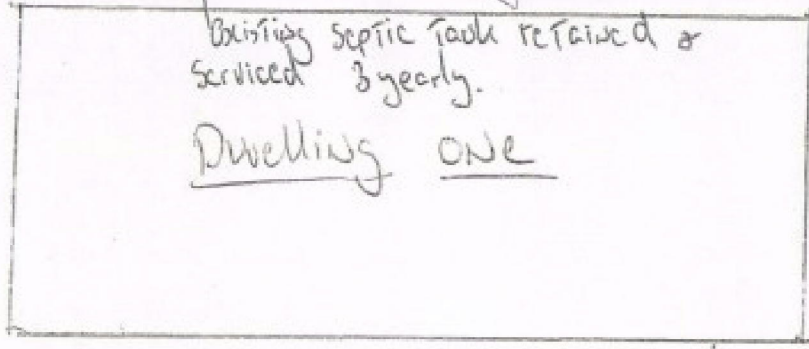 Existing Septic Tank retained &
Serviced 3 yearly.
Dwelling ONE